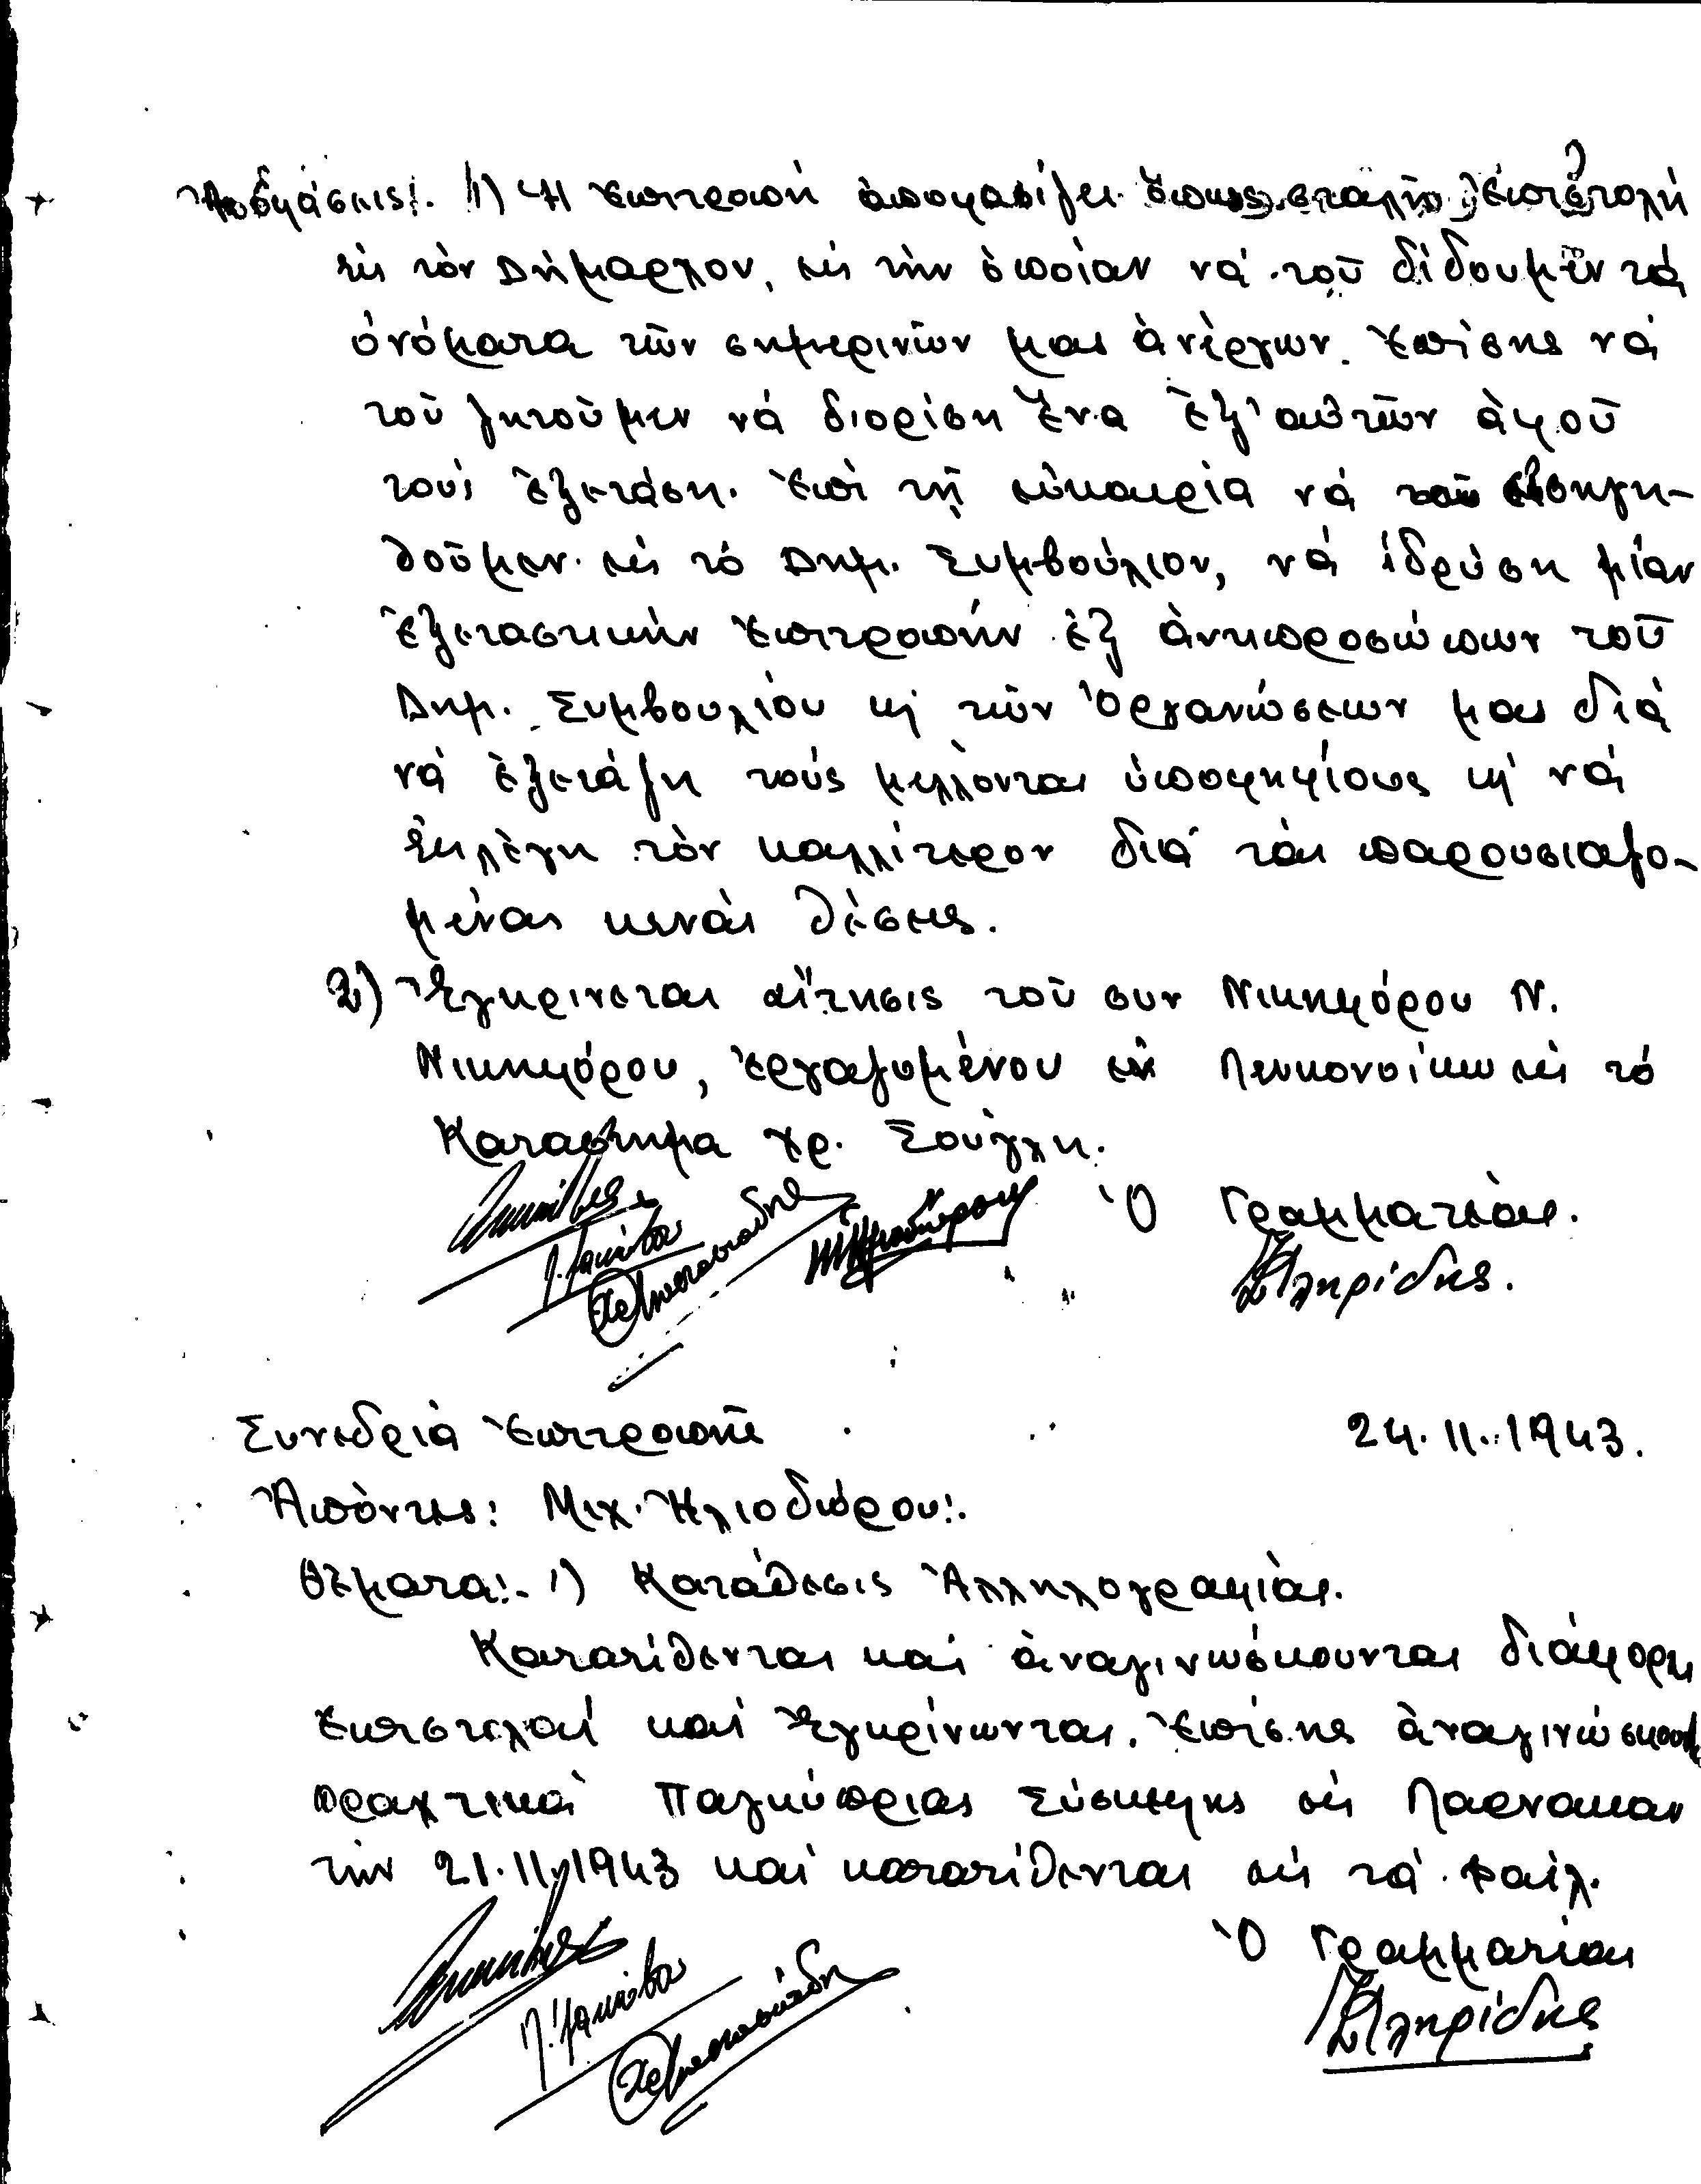 Ἀποφάσεις:. 1) Ἡ Ἐπιτροπή ἀποφασίζει ὅπως σταλῇ ἐπιστολή
εἰς τὸν Δήμαρχον, εἰς τὴν ὁποίαν νά τοῦ δίδουμεν τά
ὀνόματα τῶν σημερινῶν μας ἀνέργων. Ἐπίσης νά
τοῦ ζητοῦμεν νά διορίσῃ ἕνα ἐξ' αὐτῶν ἀφοῦ
τούς ἐξετάσῃ. Ἐπί τῇ εὐκαιρίᾳ νά εἰσηγη-
θοῦμεν εἰς τό Δημ. Συμβούλιον, νά ἱδρύσῃ μίαν
ἐξεταστικήν Ἐπιτροπήν ἐξ ἀντιπροσώπων τοῦ
Δημ. Συμβουλίου κ' τῶν Ὀργανώσεων μας διά
νά ἐξετάζῃ τούς μέλλοντας ὑποψηφίους κ' νά
ἐκλέγῃ τόν καλλίτερον διά τάς παρουσιαζο-
μένας κενάς θέσεις.
2) Ἐγκρίνεται αἴτησις τοῦ συν Νικηφόρου Ν.
Νικηφόρου, ἐργαζομένου ἐν Λευκονοίκῳ εἰς τό
Κατάστημα Χρ. Σούγλη.
Ὁ Γραμματέας.
Π. Ἰακώβου
Συνεδρία Ἐπιτροπῆς 24.11.1943.
Ἀπόντες: Μιχ. Ἡλιοδώρου:.
Θέματα:- 1) Κατάθεσις Ἀλληλογραφίας.
Κατατίθενται καί ἀναγινώσκουνται διάφοροι
Ἐπιστολαί καί Ἐγκρίνωνται. Ἐπίσης ἀναγινώσκουνται
πρακτικά Παγκύπριας Σύσκεψης εἰς Λάρνακαν
τήν 21.11.1943 καί κατατίθενται εἰς τά φάιλ.
Ὁ Γραμματέας
Π. Ἰακώβου